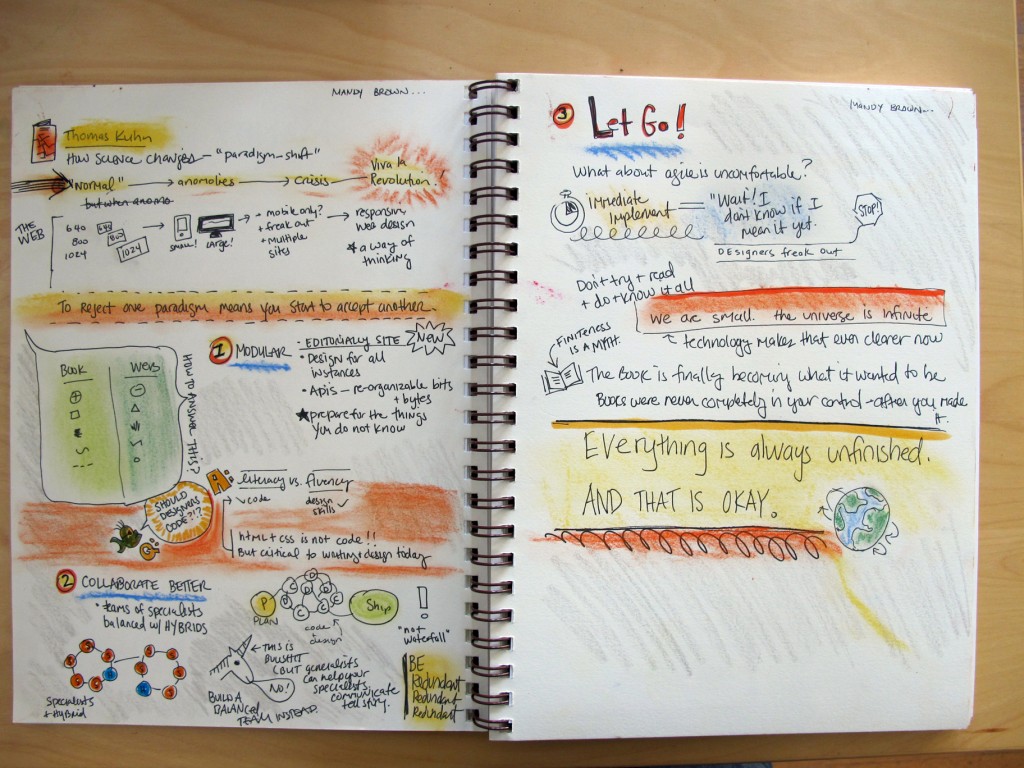 MANDY BROWN...
Thomas Kuhn
How science changes - "paradigm-shift"
"normal" → anomalies → crisis → Viva la
Revolution!
but when anoma
THE
WEB
640
800
1024
640
800
1024
SMALL!
LARGE!
+ mobile only?
+ freak out
+ Multiple
sites
→ responsive
web design
* a way of
thinking
To reject one paradigm means you start to accept another.
Book
Web
HOW TO ANSWER THIS?
1 MODULAR
- EDITORIALLY SITE
NEW
• Design for all
instances
• Apis - re-organizable bits
+ bytes
★ prepare for the things
you do not know
A: literacy vs. fluency
code
design
skills ✓
SHOULD
DESIGNERS
CODE?!?
Q:
html + css is not code!!
But critical to writing + design today
2 COLLABORATE BETTER
• teams of specialists
balanced w/ HYBRIDS
Specialists
+ Hybrid
P
PLAN
code +
design
Ship
!
"not
waterfall"
← THIS IS
BULLSHIT
(BUT generalists
can help your
specialists
communicate
tell story.
NO!
BUILD A
BALANCED
TEAM INSTEAD.
BE
Redundant
Redundant
Redundant
MANDY BROWN...
3 Let Go!
What about agile is uncomfortable?
Immediate
Implement
= "Wait! I
don't know if I
mean it yet.
STOP!
DESIGNERS freak out
Don't try + read
+ do + know it all
We are small. the universe is infinite
technology makes that even clearer now
FINITENESS
IS A MYTH.
The Book is finally becoming what it wanted to be
Books were never completely in your control - after you made
it.
Everything is always unfinished.
AND THAT IS OKAY.